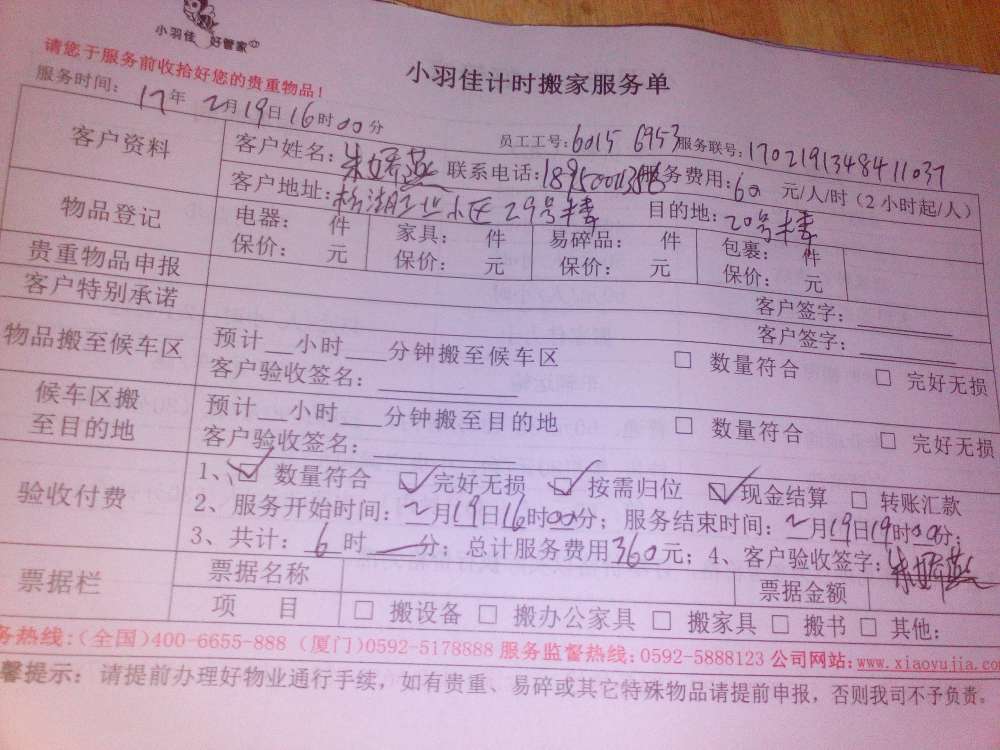 小羽佳 好管家
小羽佳计时搬家服务单
请您于服务前收拾好您的贵重物品！
服务时间：17年2月19日16时00分
员工工号：6015 6953 服务联号：1702191348411037
客户资料
客户姓名：朱娇燕 联系电话： 服务费用：60 元/人/时（2小时起/人）
客户地址：工业小区29号楼 目的地：20号楼
物品登记
电器： 件 家具： 件 易碎品： 件 包裹： 件
保价： 元 保价： 元 保价： 元 保价： 元
贵重物品申报 客户签字：
客户特别承诺 客户签字：
物品搬至候车区
预计__小时___分钟搬至候车区 □ 数量符合 □ 完好无损
客户验收签名：
候车区搬至目的地
预计__小时___分钟搬至目的地 □ 数量符合 □ 完好无损
客户验收签名：
验收付费
1、☑ 数量符合 ☑ 完好无损 ☑ 按需归位 ☑ 现金结算 □ 转账汇款
2、服务开始时间：2月19日16时00分；服务结束时间：2月19日19时00分；
3、共计：6时—分；总计服务费用360元；4、客户验收签字：朱娇燕
票据栏
票据名称 票据金额
项 目 □ 搬设备 □ 搬办公家具 □ 搬家具 □ 搬书 □ 其他：
务热线：（全国）400-6655-888（厦门）0592-5178888 服务监督热线：0592-5888123 公司网站：www.xiaoyujia.com
馨提示：请提前办理好物业通行手续，如有贵重、易碎或其它特殊物品请提前申报，否则我司不予负责。